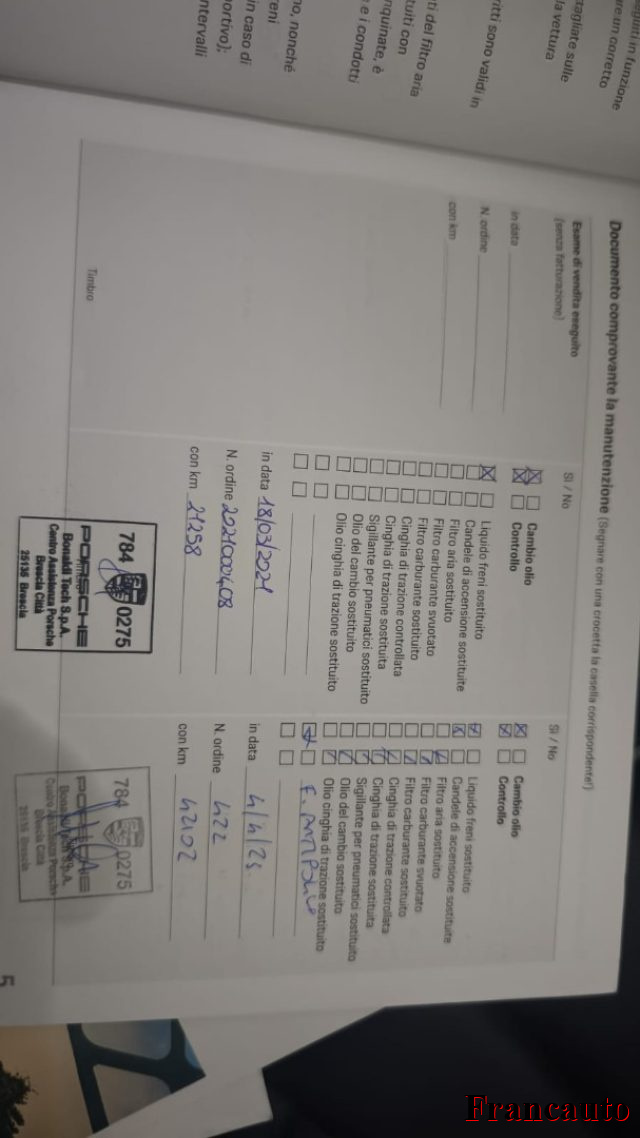 eguiti in funzione
are un corretto
tagliate sulle
la vettura
ritti sono validi in
ti del filtro aria
tuiti con
nquinate, è
e i condotti
no, nonché
reni
in caso di
portivo);
ntervalli
Documento comprovante la manutenzione (Segnare con una crocetta la casella corrispondente!)
Esame di vendita eseguito
(senza fatturazione)
in data
N. ordine
con km
Timbro
SI / No
Cambio olio
Controllo
Liquido freni sostituito
Candele di accensione sostituite
Filtro aria sostituito
Filtro carburante svuotato
Filtro carburante sostituito
Cinghia di trazione controllata
Cinghia di trazione sostituita
Sigillante per pneumatici sostituito
Olio del cambio sostituito
Olio cinghia di trazione sostituito
in data 18/03/2021
N. ordine 202100408
con km 21258
784 0275
PORSCHE
Bonaldi Tech S.p.A.
Centro Assistenza Porsche
Brescia Città
25135 Brescia
SI / No
Cambio olio
Controllo
Liquido freni sostituito
Candele di accensione sostituite
Filtro aria sostituito
Filtro carburante svuotato
Filtro carburante sostituito
Cinghia di trazione controllata
Cinghia di trazione sostituita
Sigillante per pneumatici sostituito
Olio del cambio sostituito
Olio cinghia di trazione sostituito
in data 4/4/23
N. ordine 422
con km 42102
784 0275
PORSCHE
Bonaldi Tech S.p.A.
Centro Assistenza Porsche
Brescia Città
25135 Brescia
5
Francauto